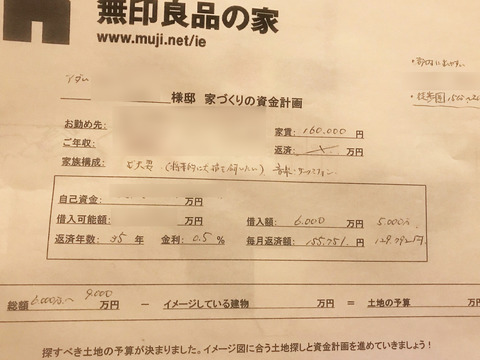 無印良品の家
www.muji.net/ie
様邸 家づくりの資金計画
お勤め先: 家賃: 160.000 円
ご年収: 返済: 万円
家族構成: ご夫婦
自己資金: 万円
借入可能額: 万円 借入額: 6.000 万円 5.000万
返済年数: 35 年 金利: 0.5 % 毎月返済額: 155.751 円 129.792円
総額 6.000万〜 9.000 万円 − イメージしている建物 万円 = 土地の予算 万円
探すべき土地の予算が決まりました。イメージ図に合う土地探しと資金計画を進めていきましょう!